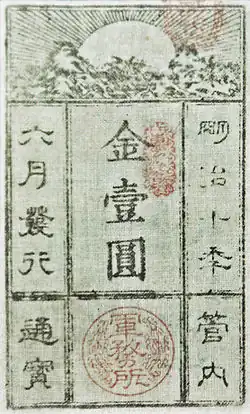 明治十年
管内
金壹圓
軍務所
六月發行
通寳